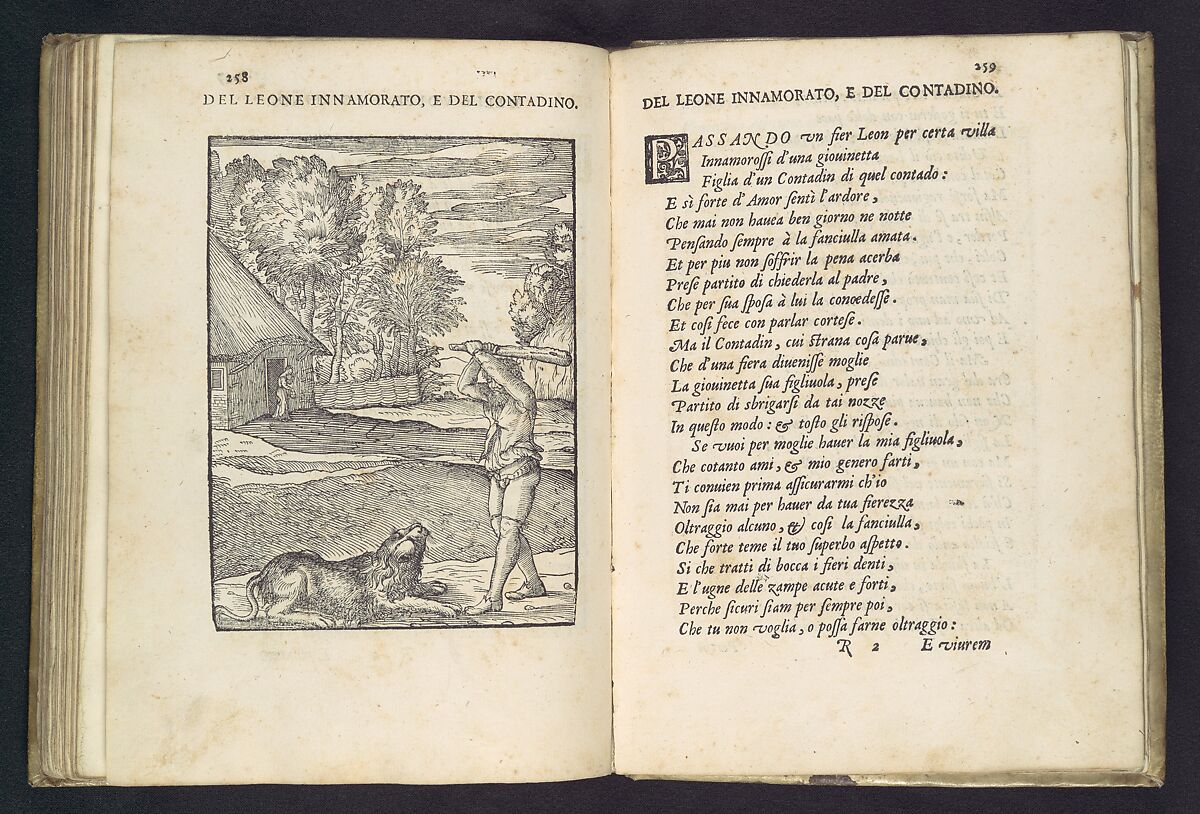 258
DEL LEONE INNAMORATO, E DEL CONTADINO.
259
DEL LEONE INNAMORATO, E DEL CONTADINO.
PASSANDO vn fier Leon per certa villa
Innamoroſſi d'una giouinetta
Figlia d'un Contadin di quel contado:
E sì forte d'Amor ſentì l'ardore,
Che mai non hauea ben giorno ne notte
Penſando ſempre à la fanciulla amata.
Et per piu non ſoffrir la pena acerba
Preſe partito di chiederla al padre,
Che per ſua ſpoſa à lui la concedeſſe.
Et coſi fece con parlar corteſe.
Ma il Contadin, cui ſtrana coſa parue,
Che d'una fiera diueniſſe moglie
La giouinetta ſua figliuola, preſe
Partito di sbrigarſi da tai nozze
In queſto modo: & toſto gli riſpoſe.
Se vuoi per moglie hauer la mia figliuola,
Che cotanto ami, & mio genero farti,
Ti conuien prima aſſicurarmi ch'io
Non ſia mai per hauer da tua fierezza
Oltraggio alcuno, & coſi la fanciulla,
Che forte teme il tuo ſuperbo aſpetto.
Si che tratti di bocca i fieri denti,
E l'ugne delle zampe acute e forti,
Perche ſicuri ſiam per ſempre poi,
Che tu non voglia, o poſſa farne oltraggio:
R 2 E viurem